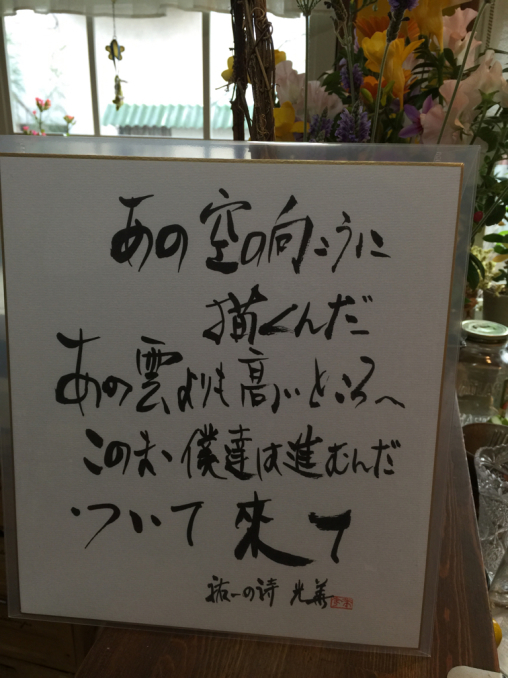 あの空の向こうに
描くんだ
あの雲よりも高いところへ
このまま僕達は進むんだ
ついて来て
祐一の詩 光